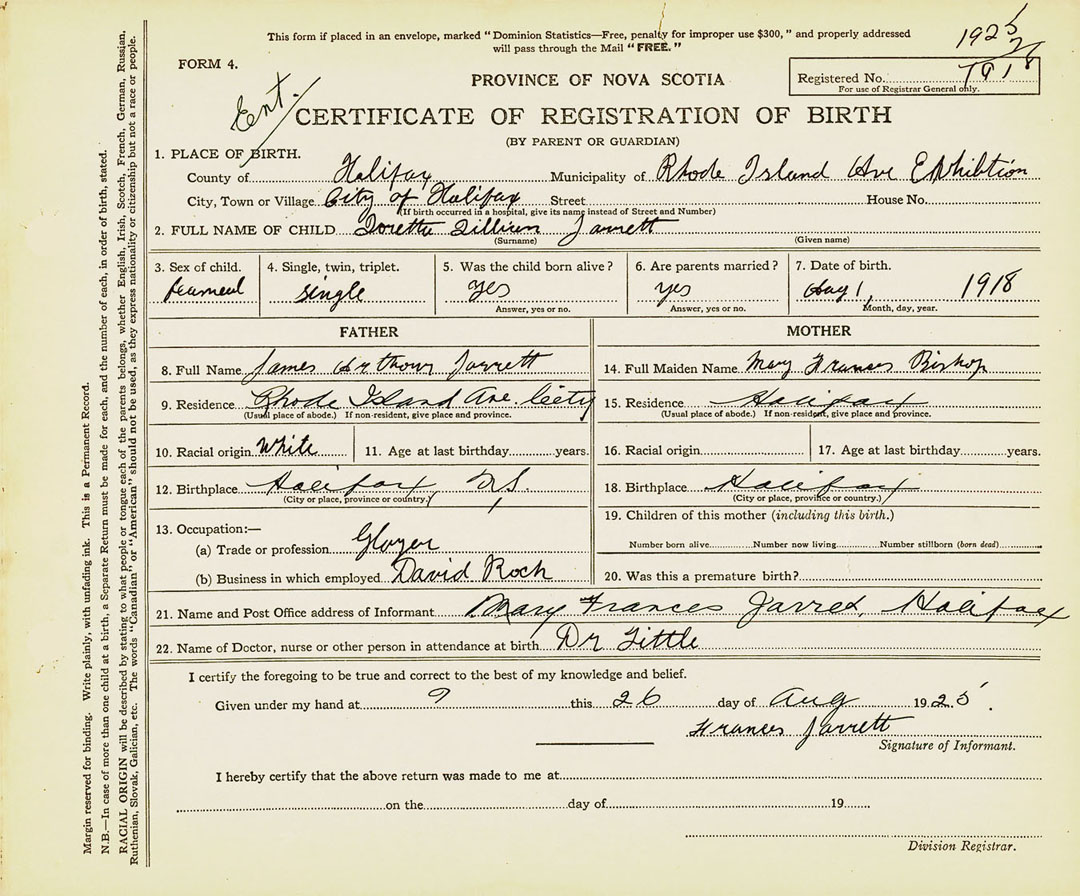 This form if placed in an envelope, marked "Dominion Statistics—Free, penalty for improper use $300," and properly addressed
will pass through the Mail "FREE."
1925
FORM 4.
Ent.
PROVINCE OF NOVA SCOTIA
Registered No. 1918
For use of Registrar General only.
CERTIFICATE OF REGISTRATION OF BIRTH
(BY PARENT OR GUARDIAN)
1. PLACE OF BIRTH.
County of Halifax Municipality of Rhode Island Ave Exhibtion
City, Town or Village City of Halifax Street House No.
(If birth occurred in a hospital, give its name instead of Street and Number)
2. FULL NAME OF CHILD Lillian Jarrett
(Surname) (Given name)
3. Sex of child. 4. Single, twin, triplet. 5. Was the child born alive? 6. Are parents married? 7. Date of birth.
single yes yes 1, 1918
Answer, yes or no. Answer, yes or no. Month, day, year.
FATHER MOTHER
8. Full Name James Arthour Jarrett 14. Full Maiden Name Mary Frances Bishop
9. Residence Rhode Island Ave. Ciety 15. Residence Halifax
(Usual place of abode.) If non-resident, give place and province. (Usual place of abode.) If non-resident, give place and province.
10. Racial origin White 11. Age at last birthday years. 16. Racial origin 17. Age at last birthday years.
12. Birthplace Halifax, N.S. 18. Birthplace Halifax
(City or place, province or country.) (City or place, province or country.)
13. Occupation:— 19. Children of this mother (including this birth.)
(a) Trade or profession Number born alive Number now living Number stillborn (born dead)
(b) Business in which employed David Roch 20. Was this a premature birth?
21. Name and Post Office address of Informant Mary Frances Halifax
22. Name of Doctor, nurse or other person in attendance at birth Dr Little
I certify the foregoing to be true and correct to the best of my knowledge and belief.
Given under my hand at ? this 26 day of Aug 1925.
Frances Jarrett
Signature of Informant.
I hereby certify that the above return was made to me at
on the day of 19
Division Registrar.
Margin reserved for binding. Write plainly, with unfading ink. This is a Permanent Record.
N.B.—In case of more than one child at a birth, a Separate Return must be made for each, and the number of each, in order of birth, stated.
RACIAL ORIGIN will be described by stating to what people or tongue each of the parents belongs, whether English, Irish, Scotch, French, German, Russian,
Ruthenian, Slovak, Galician, etc. The words "Canadian" or "American" should not be used, as they express nationality or citizenship but not a race or people.